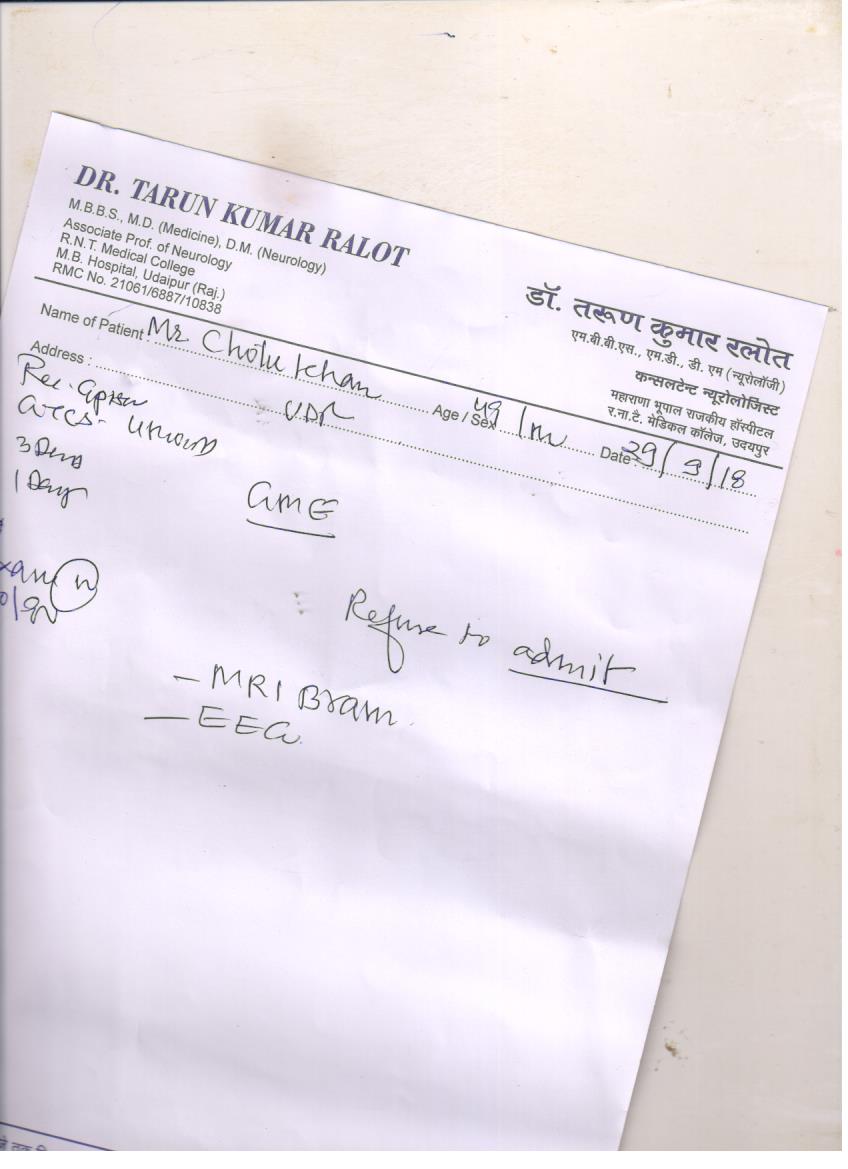 DR. TARUN KUMAR RALOT
M.B.B.S., M.D. (Medicine), D.M. (Neurology)
Associate Prof. of Neurology
R.N.T. Medical College
M.B. Hospital, Udaipur (Raj.)
RMC No. 21061/6887/10838
डॉ. तरूण कुमार रलोत
एम.बी.बी.एस., एम.डी., डी. एम (न्यूरोलॉजी)
कन्सलटेन्ट न्यूरोलोजिस्ट
महाराणा भूपाल राजकीय हॉस्पीटल
र.ना.टै. मेडिकल कॉलेज, उदयपुर
Name of Patient : Mr Chotu Khan Age / Sex 49/m Date : 29/9/18
Address : UDR
Rec.
3 Days
1 Day
GME
Refuse to admit
- MRI Brain
- EEG